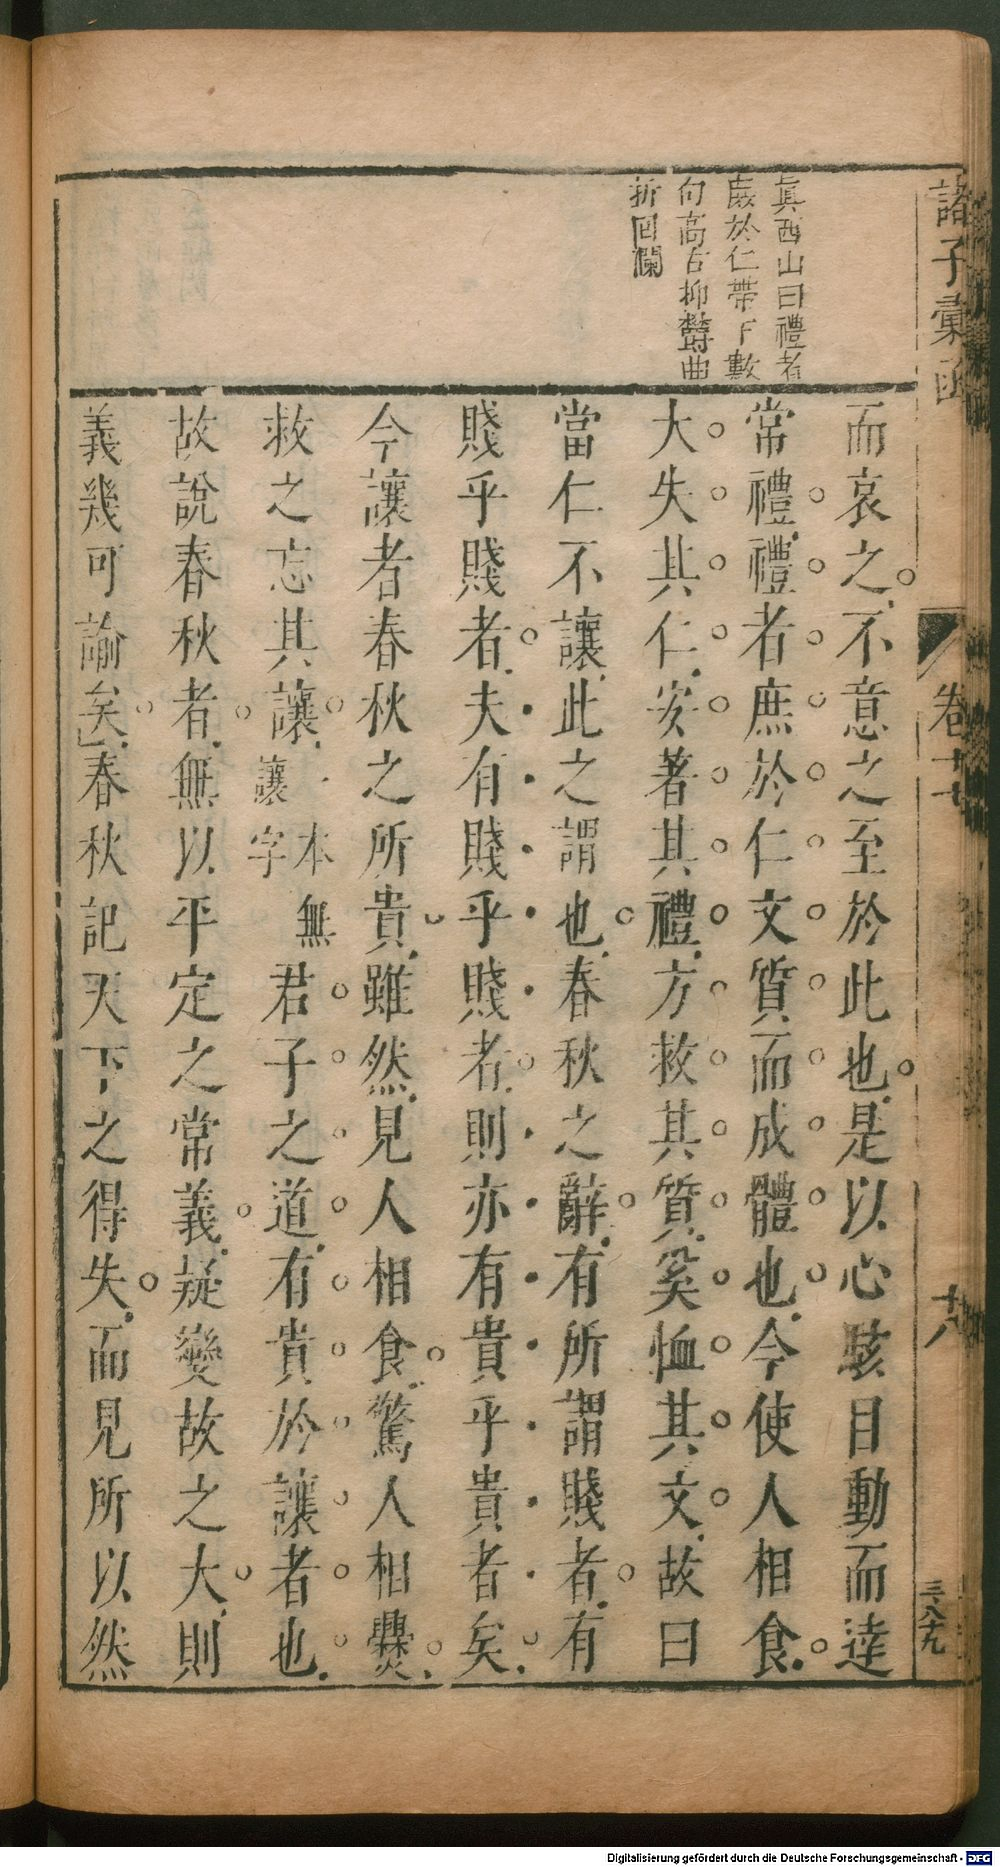 諸子彙函
卷十七
十八
三八十九
眞西山曰禮者
庶於仁帶下數
句高古抑鬱曲
折回瀾
而哀之不意之至於此也是以心駭目動而達
常禮禮者庶於仁文質而成體也今使人相食
大失其仁安著其禮方救其質奚恤其文故曰
當仁不讓此之謂也春秋之辭有所謂賤者有
賤乎賤者夫有賤乎賤者則亦有貴乎貴者矣
今讓者春秋之所貴雖然見人相食驚人相爨
救之忘其讓一本無讓字君子之道有貴於讓者也
故說春秋者無以平定之常義疑變故之大則
義幾可諭矣春秋記天下之得失而見所以然
Digitalisierung gefördert durch die Deutsche Forschungsgemeinschaft - DFG